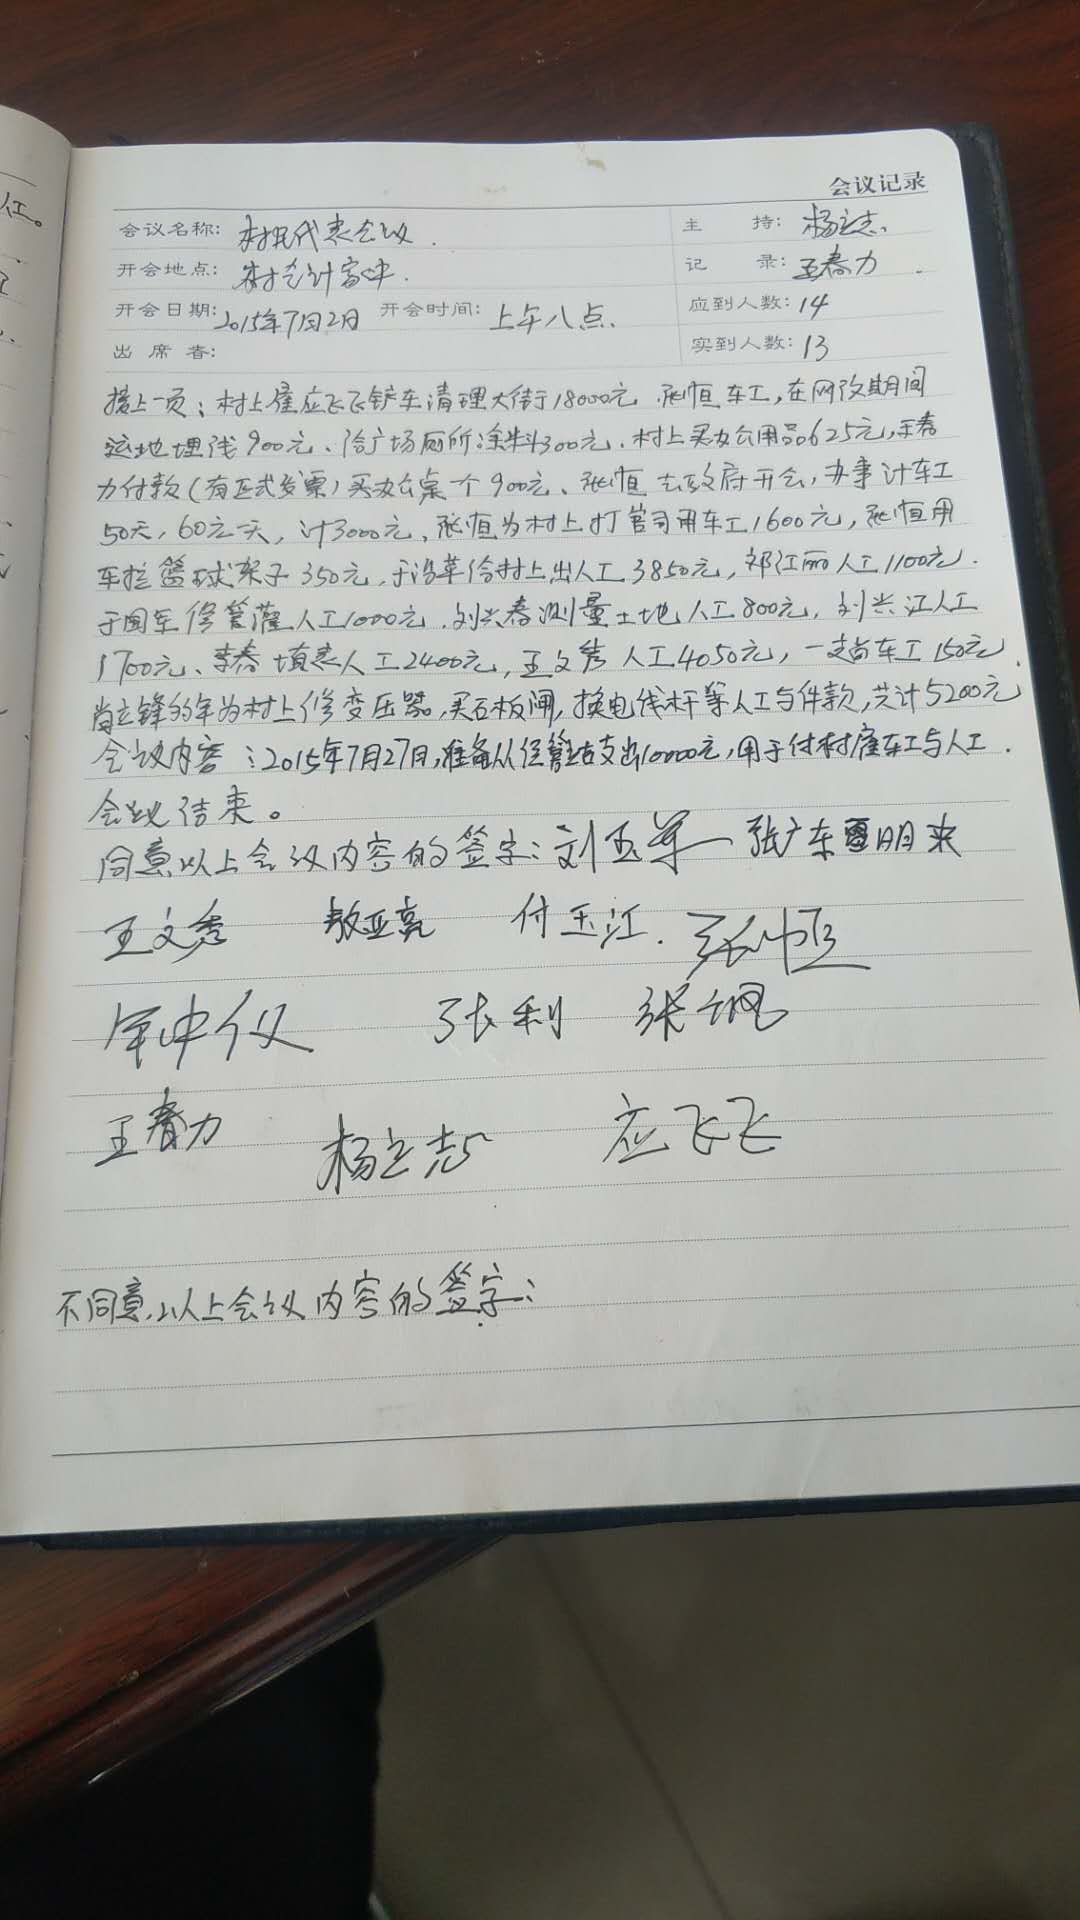 会议记录
会议名称：村民代表会议． 主 持：杨立志．
开会地点：村会计家中． 记 录：王春力．
开会日期：2015年7月2日 开会时间：上午八点． 应到人数：14
出 席 者： 实到人数：13
接上一页：村上雇应飞飞铲车清理大街18000元．张恒车工，在网改期间
运地埋线900元、给广场厕所涂料300元．村上买办公用品625元，王春
力付款（有正式发票）买办公桌一个900元、张恒去政府开会，办事计车工
50天，60元一天，计3000元、张恒为村上打官司用车工1600元，张恒用
车拉篮球架子350元，于治革给村上出人工3850元，祁江丽人工1100元．
于国军修管灌人工1000元．刘兴春测量土地人工800元，刘兴江人工
1700元、李春填表人工2400元，王文秀人工4050元，一支尚车工150元．
尚立锋多年为村上修变压器，买石板闸，换电线杆等人工与件款，共计5200元
会议内容：2015年7月27日，准备从经管站支出10000元，用于付村雇车工与人工．
会议结束。
同意以上会议内容的签字：刘玉军 张广东 雷明来
王文秀 敖亚亮 付玉江． 张恒
张利
王春力 杨立志 应飞飞
不同意以上会议内容的签字：
江。